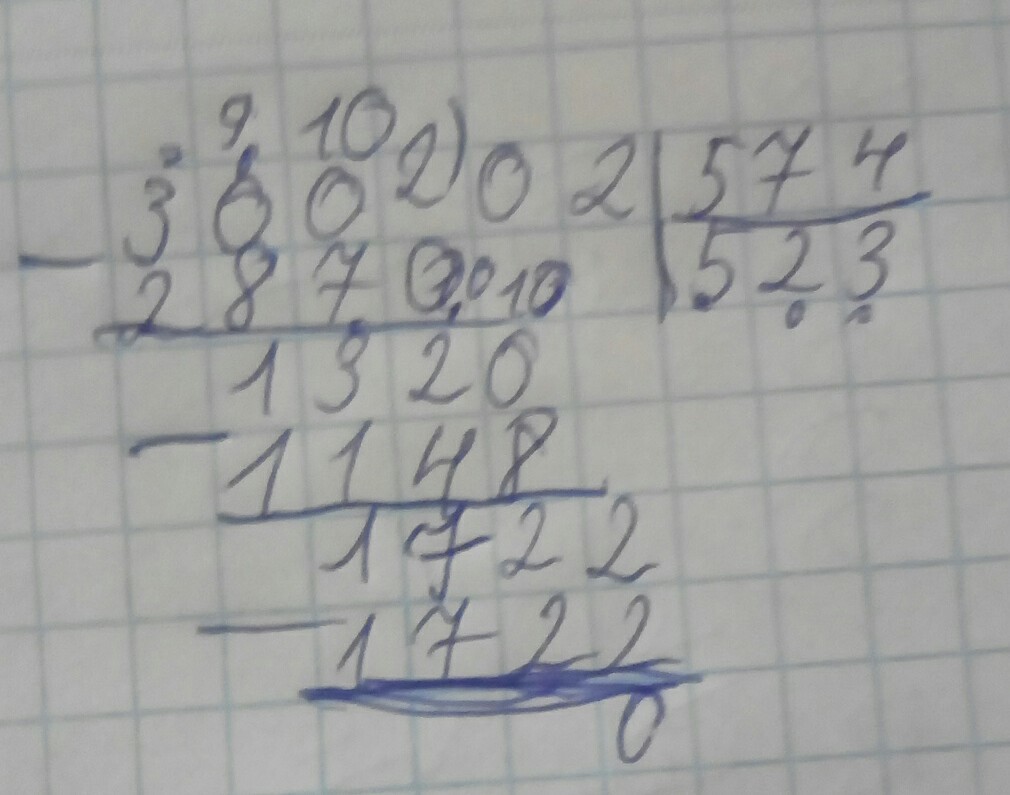 9 10
300202 574
2870 10 523
1320
1148
1722
1722
0